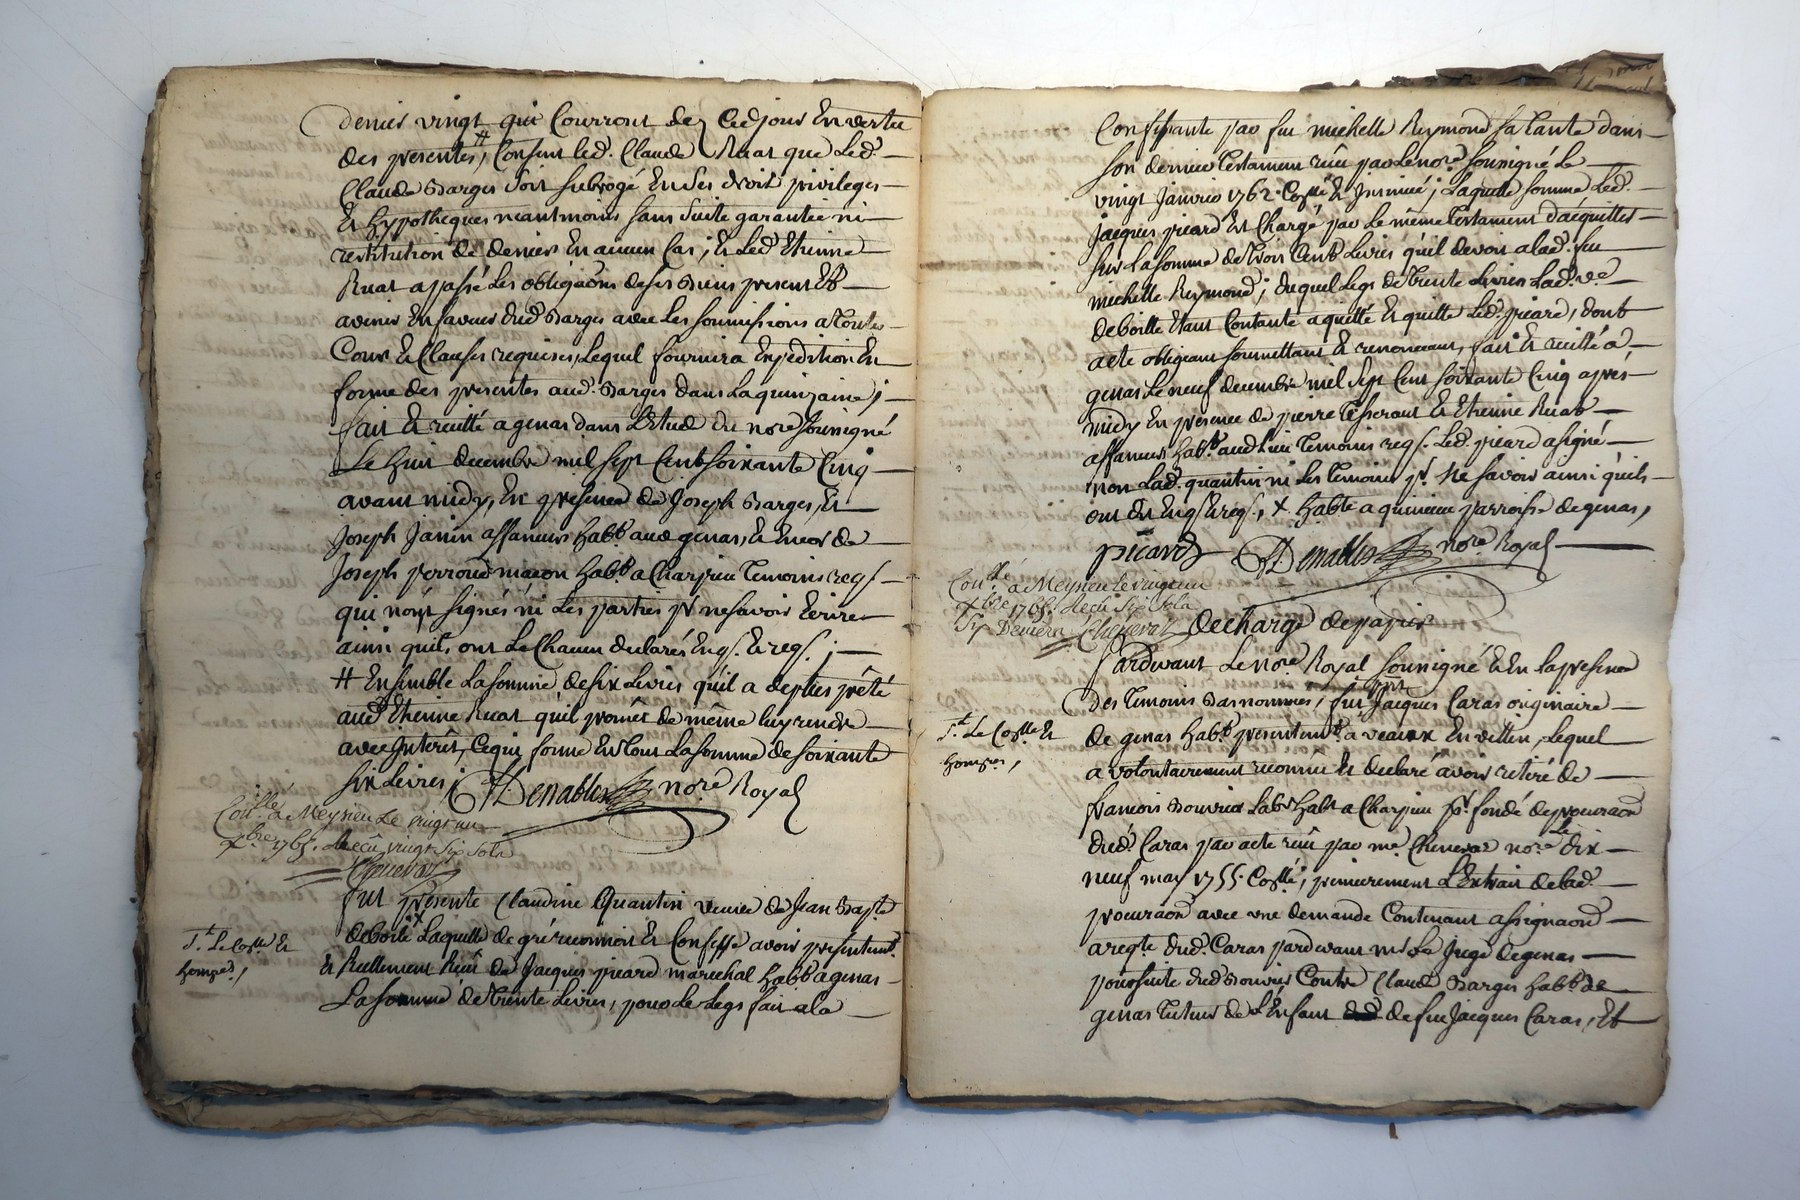 denier vingt qui Courront de Cedjour En vertu
des presentes,# Consent led. Claude Ruat que Led.
Claude Barges soit subrogé En ses droit privileges
Et hypotheques neantmoins sans suite garantie ni
restitution de denier En aucun Cas; Et Led Etienne
Ruat a passé Les obligaons de ses Biens present Et
avenir En faveur dud Barges avec Les soumissions a Toutes
Cour Et Clauses requises, Lequel fournira Expedition En
forme des presentes aud. Barges dans La quinzaine;
fait Et recitté a genas dans L'Etude du nore soussigné
Le huit decembre mil sept Cent soixante Cinq
avant midy, En presence de Joseph Barges, Et
Joseph Janin affaneurs habt aud genas, Et Encor de
Joseph perroud macon habt a Charpieu Temoins req.
qui n'ont signés ni Les parties pr ne savoir Ecrire
ainsi quils ont Le Chacun declarés Enq. Et req.;
# Ensemble La somme de six Livres qu'il a de plus prêté
aud Etienne Ruat qu'il promet de même luy rendre
avec Interêt, Ce qui forme En Tout La somme de soixante
six Livres; Denablis nore Royal
Conllé a Meysieu Le vingt un
xbre 1765. Reçû vingt six sols
Chenevat
fut presente Claudine Quantin veuve de Jean Bapte
deboille x Laquelle de gré reconnoit Et Confesse avoir presentemt
Et Reellement Reçu de Jacques picard marechal habt a genas
La somme de Trente Livres, pour Le Legs fait a la
Confessante par feu michelle Reymond sa Tante dans
son dernier Testament reçu par Le nore soussigné Le
vingt Janvier 1762. Collé Et Insinué; Laquelle somme Led.
Jacques picard Est Chargé par Le même Testament d'acquitter
sur La somme de Trois Cent Livres qu'il devoit a lad. feu
michelle Reymond; duquel Legs de Trente Livres Lad. ve
deboille Etant Contante a quitté Et quitte Led. picard, dont
acte obligeant soumettant Et renonceant, fait Et recitté a
genas Le neuf decembre mil sept Cent soixante Cinq après
midy En presence de pierre Tisserant Et Etienne Ruat
affaneurs habt aud Lieu Temoins req. Led. picard a signé
non Lad. quantin ni Les Temoins pr Ne savoir ainsi qu'ils
ont dit Enq. Et req., x habte a parroisse de genas,
picard Denablis nore Royal
Conllé a Meysieu Le vingt un
xbre 1765. Reçû Six Sols
Six Deniers Chenevat
decharge de papier
Pardevant Le nore Royal soussigné Et En La presence
des Temoins Basnommés, fut prnt Jacques Caras originaire
de genas habt presentemt a veaux En vellin, Lequel
a volontairement reconnu Et declaré avoir retiré de
francois Bouvier Labr habt a Charpieu pr fondé de procuraon
dud Caras par acte reçu par me Chenevas nore Le dix
neuf may 1755. Collé, premierement L'Extrait de lad.
procuraon avec une demande Contenant assignaon
a reqte dud. Caras pardevant mr Le Juge de genas
poursuite dud Bouvier Contre Claude Barges habt de
genas Tuteur de L'Enfant de feu Jacques Caras, Et
Tt Le Collé Et